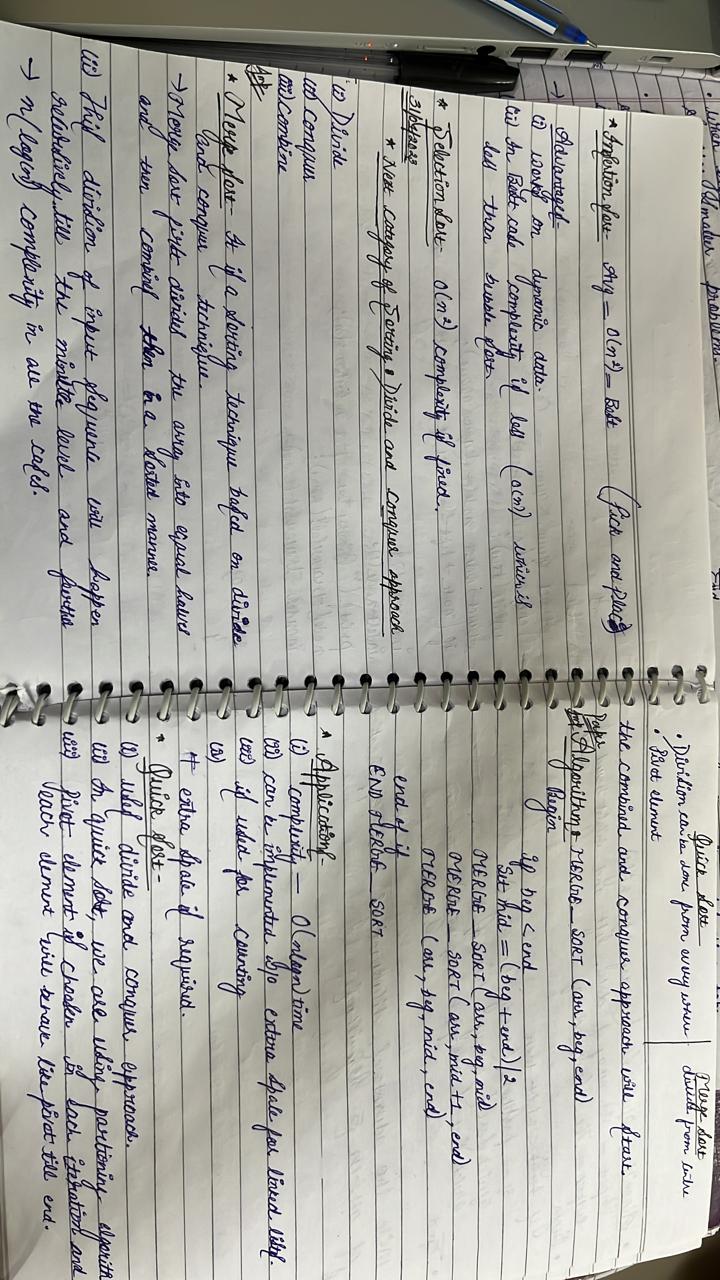 * Insertion sort- Avg = O(n²) = Best (Pick and Place)
Advantages-
(i) works on dynamic data.
(ii) In Best case complexity is less (O(n)) which is
less than bubble sort.
* Selection sort- O(n²) complexity is fixed.
* Next category of Sorting: Divide and conquer approach
(i) Divide
(ii) Conquer
(iii) Combine
Imp
* Merge sort- It is a sorting technique based on divide
and conquer technique.
→ Merge sort first divides the array into equal halves
and then combines them in a sorted manner.
(iii) This division of input sequence will happen
recursively till the minute level and further
→ n(logn) complexity in all the cases.
Quick sort | Merge sort
• Division can be done from every where | divide from
• Pivot element
the combined and conquer approach will start.
Algorithm: MERGE-SORT (arr, beg, end)
Begin
if beg < end
Set mid = (beg + end)/2
MERGE-SORT (arr, beg, mid)
MERGE-SORT (arr, mid+1, end)
MERGE (arr, beg, mid, end)
end of if
END MERGE_SORT
* Applications-
(i) complexity - O(nlogn) time
(ii) can be implemented w/o extra space for linked lists.
(iii) is used for counting
# extra space is required.
* Quick Sort-
(i) uses divide and conquer approach.
(ii) In quick sort, we are using partioning algorith
(iii) Pivot element is choosen in each iteration and
each element will behave like pivot till end.